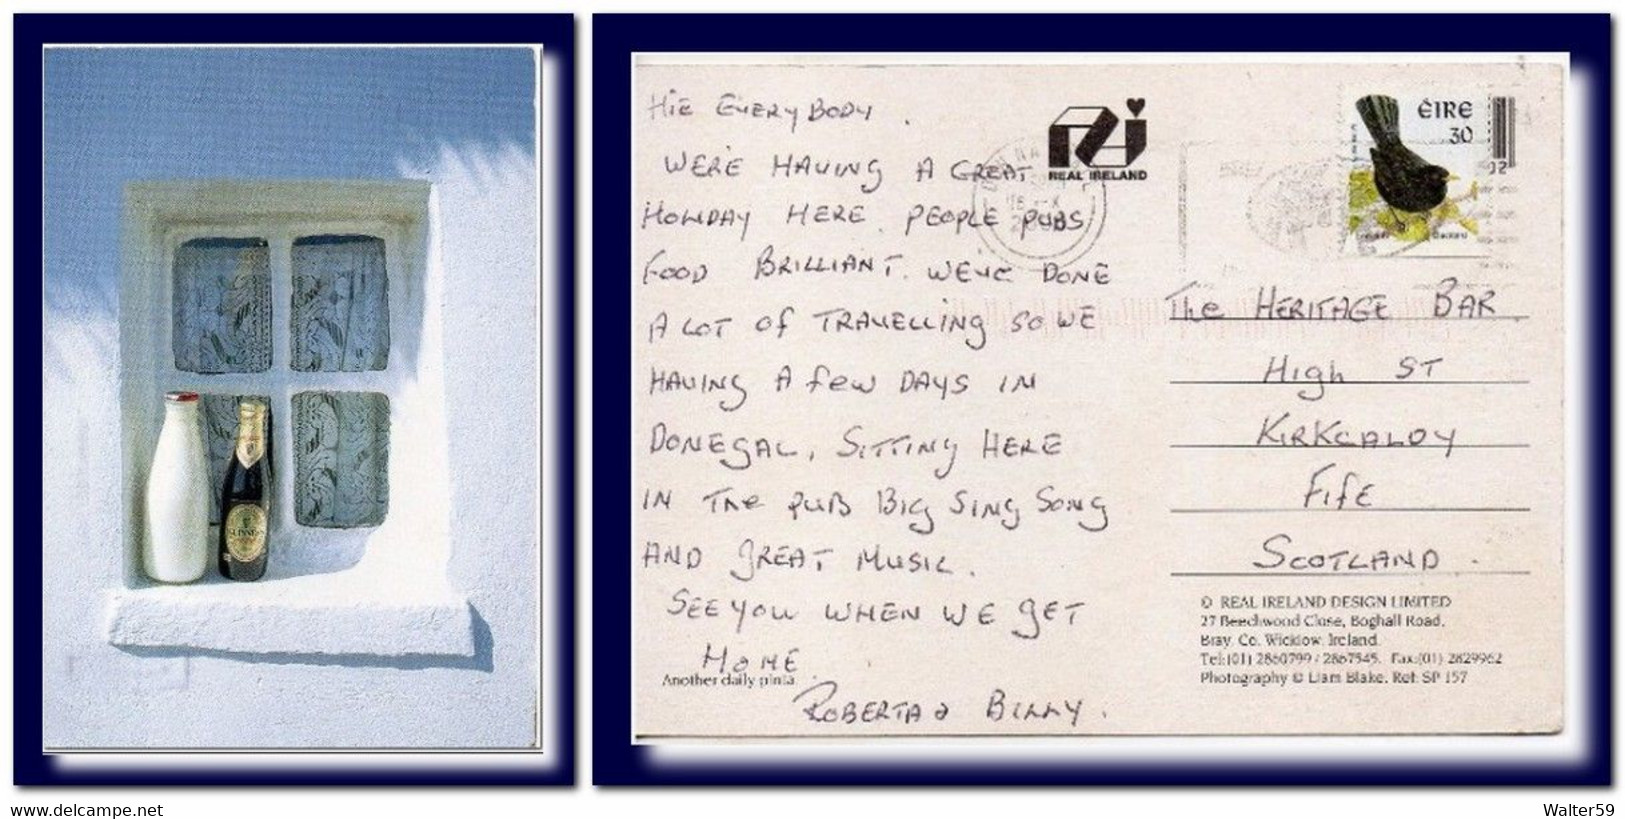 GUINNESS
HiE EVERYBODY.
WERE HAVING A GREAT
HOLIDAY HERE. PEOPLE PUBS
FOOD BRILLIANT. WE'VE DONE
A LOT OF TRAVELLING SO WE
HAVING A FEW DAYS IN
DONEGAL, SITTING HERE
IN THE PUB BIG SING SONG
AND GREAT MUSIC.
SEE YOU WHEN WE GET
HOME
Another daily pinta.
ROBERTA & BILLY.
REAL IRELAND
ÉIRE
30
The HERITAGE BAR
High ST
KIRKCALDY
FIFE
SCOTLAND.
© REAL IRELAND DESIGN LIMITED
27 Beechwood Close, Boghall Road,
Bray. Co. Wicklow. Ireland.
Tel:(01) 2860799 / 2867545. Fax:(01) 2829962
Photography © Liam Blake. Ref: SP 157
delcampe.net
Walter59